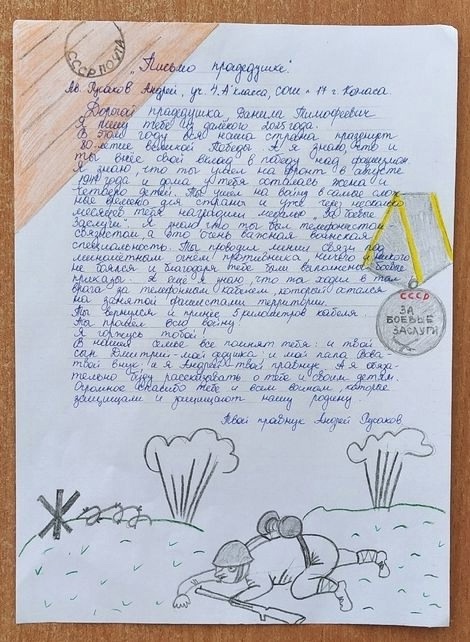 СССР ПОЧТА
"Письмо прадедушке".
Ав. Русаков Андрей, уч. 4"А" класса, СОШ № 17 г.
Дорогой прадедушка, Данила Тимофеевич
Я пишу тебе из далёкого 2025 года.
В этом году вся наша страна празднует
80-летие великой Победы. А я знаю, что и
ты внёс свой вклад в победу над фашизмом.
Я знаю, что ты ушёл на фронт в августе
года и дома у тебя осталась жена и
четверо детей. Ты ушёл на войну в самые слож-
ные времена для страны и уже через несколько
месяцев тебя наградили медалью "За боевые
заслуги". Я знаю что ты был телефонистом
связистом а это очень важная воинская
специальность. Ты проводил линии связи под
миномётным огнём противника, ничего и никого
не боялся и благодаря тебе были выполнены боевые
приказы. Я ещё я знаю, что ты ходил в тыл
врага за телефонным кабелем, который остался
на занятой фашистами территории.
Ты вернулся и принёс 5 километров кабеля
Ты прошёл всю войну.
Я горжусь тобой!
В нашей семье все помнят тебя: и твой
сын Дмитрий - мой дедушка и мой папа Вова-
твой внук, и я Андрей твой правнук. А я обяза-
тельно буду рассказывать о тебе и своим детям.
Огромное спасибо тебе и всем воинам, которые
защищали и защищают нашу родину.
Твой правнук Андрей Русаков
СССР
ЗА
БОЕВЫЕ
ЗАСЛУГИ